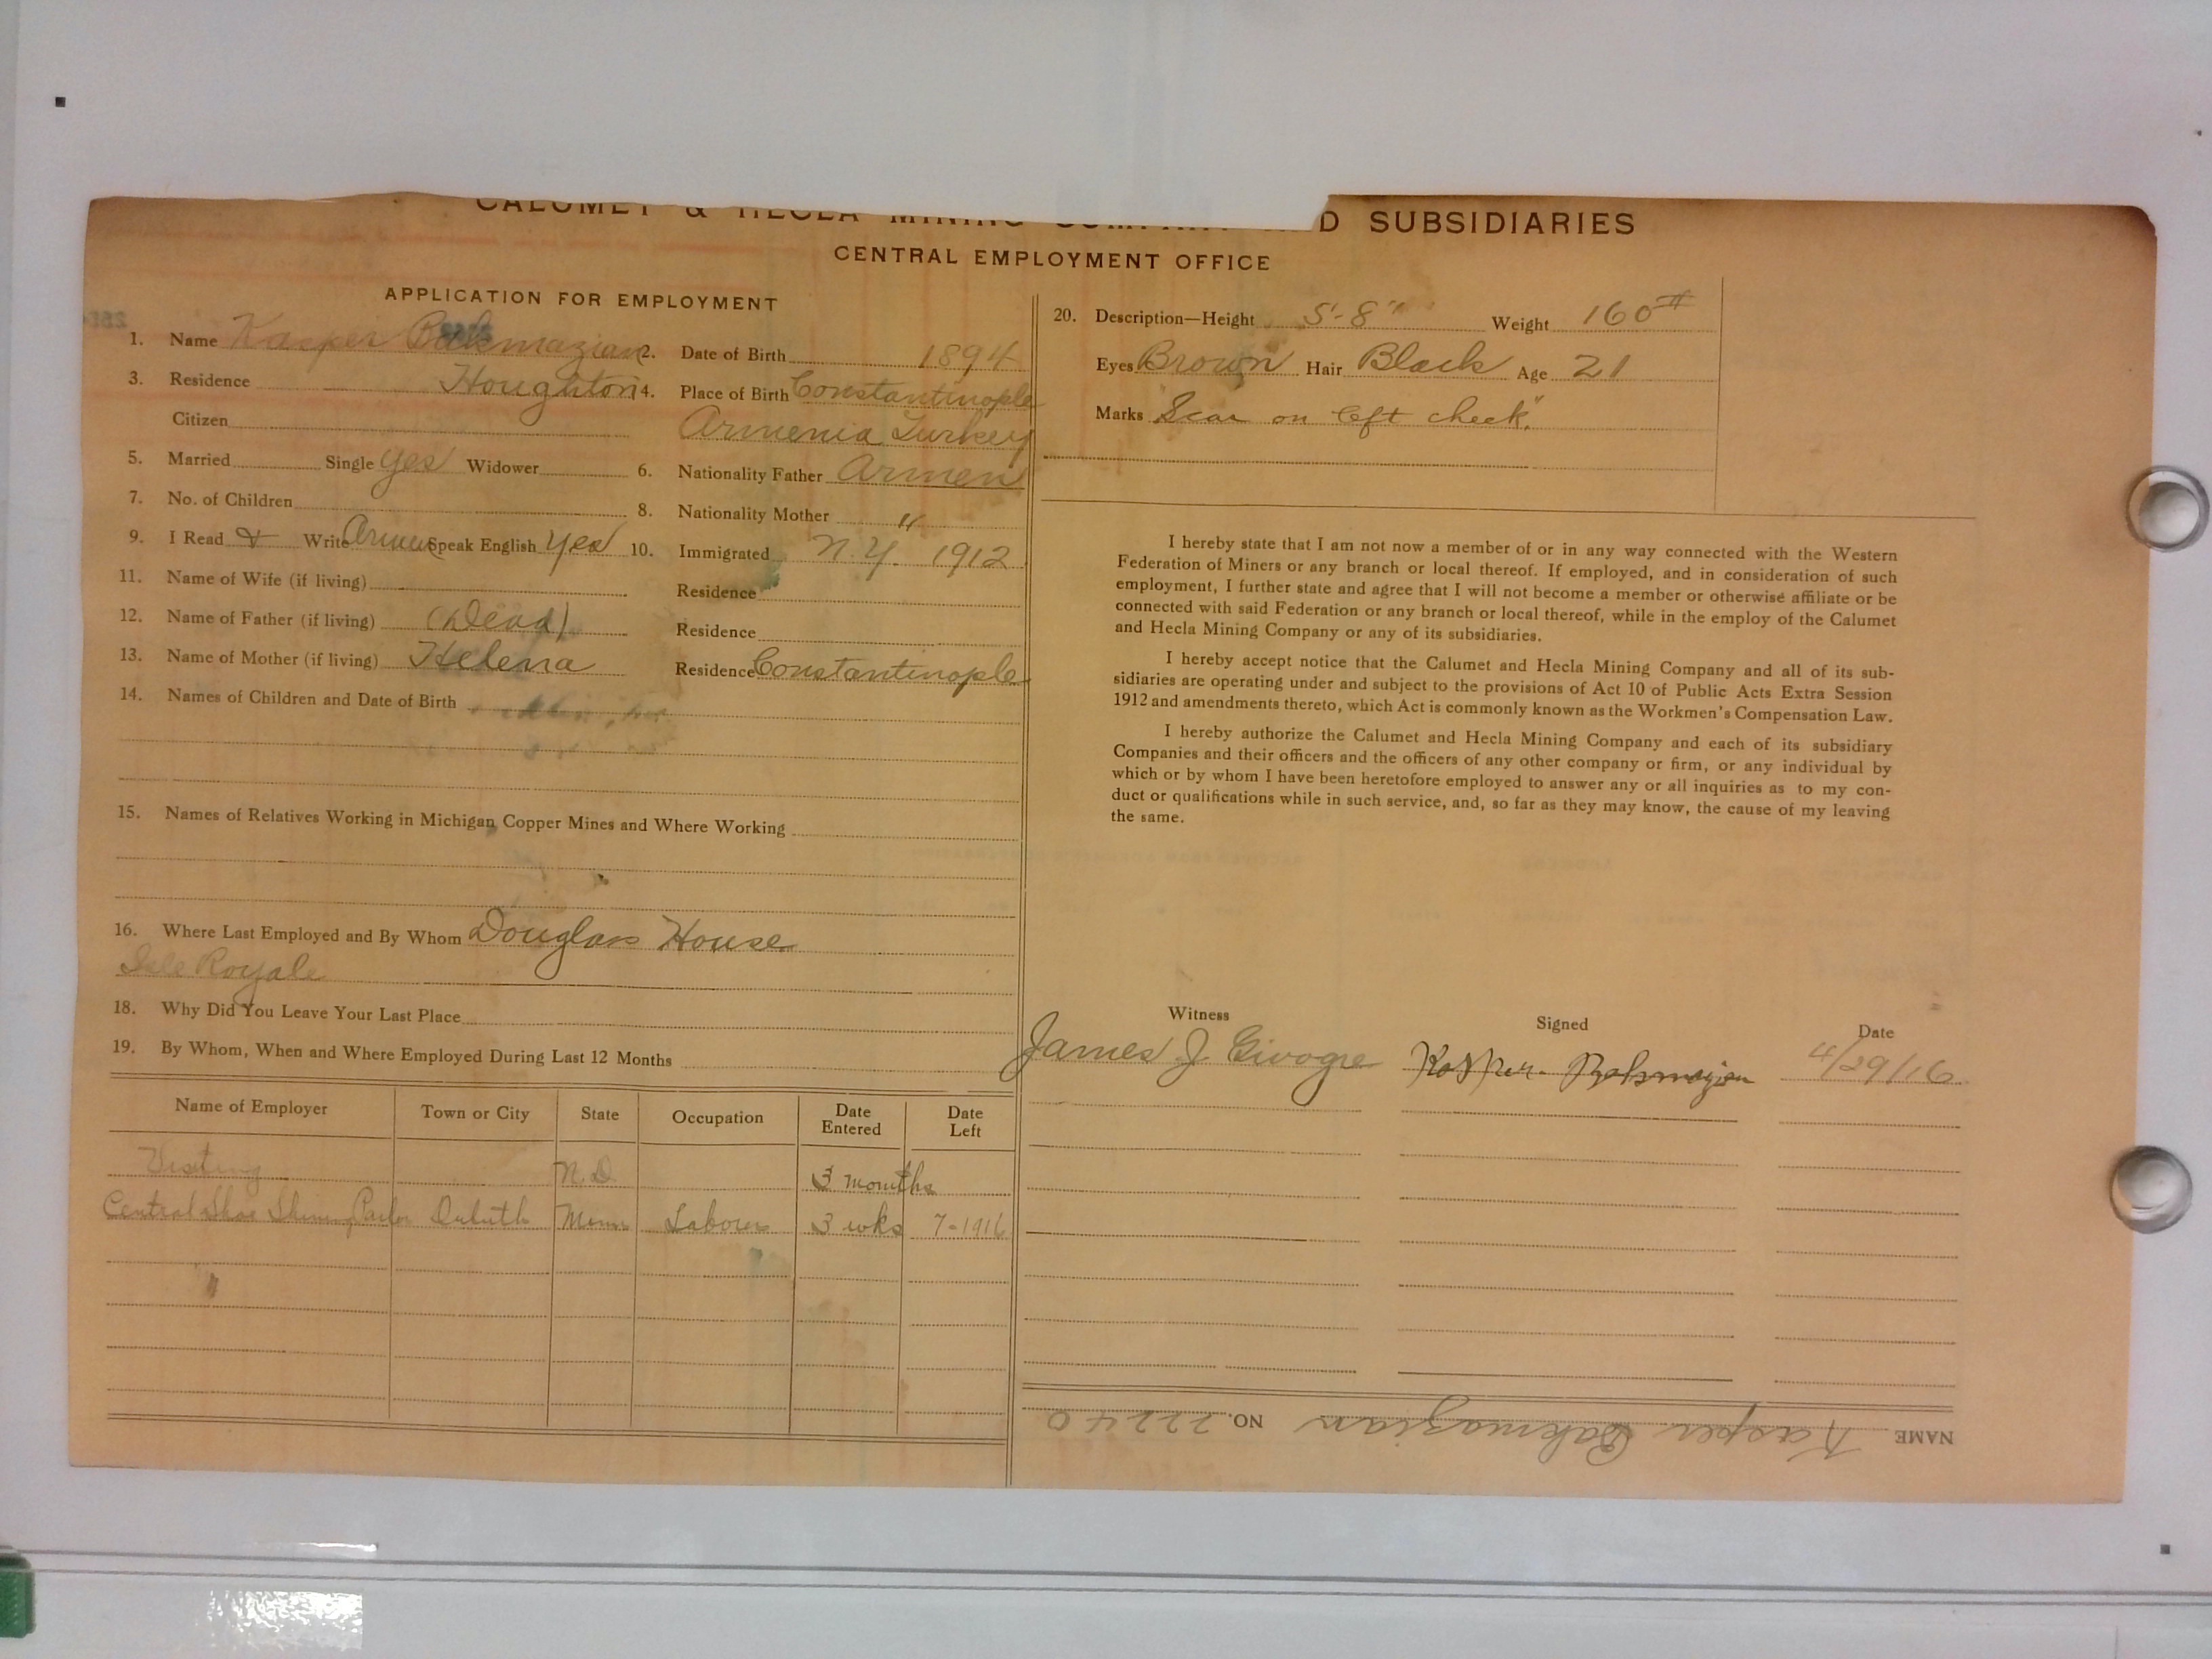 CALUMET & HECLA MINING COMPANY AND SUBSIDIARIES
CENTRAL EMPLOYMENT OFFICE
APPLICATION FOR EMPLOYMENT
1. Name Kasper Bakmazian 2. Date of Birth 1894
3. Residence Houghton 4. Place of Birth Constantinople
Citizen Armenia Turkey
5. Married Single yes Widower 6. Nationality Father Armen
7. No. of Children 8. Nationality Mother "
9. I Read & Write Armen Speak English yes 10. Immigrated N.Y. 1912
11. Name of Wife (if living) Residence
12. Name of Father (if living) (Dead) Residence
13. Name of Mother (if living) Helena Residence Constantinople
14. Names of Children and Date of Birth
15. Names of Relatives Working in Michigan Copper Mines and Where Working
16. Where Last Employed and By Whom Douglass House
Isle Royale
18. Why Did You Leave Your Last Place
19. By Whom, When and Where Employed During Last 12 Months
Name of Employer Town or City State Occupation Date Entered Date Left
Visiting N.D. 3 months
Central Shoe Shining Parlor Duluth Minn Laborer 3 wks 7-1916
"
20. Description—Height 5'-8" Weight 160#
Eyes Brown Hair Black Age 21
Marks "Scar on left cheek."
I hereby state that I am not now a member of or in any way connected with the Western
Federation of Miners or any branch or local thereof. If employed, and in consideration of such
employment, I further state and agree that I will not become a member or otherwise affiliate or be
connected with said Federation or any branch or local thereof, while in the employ of the Calumet
and Hecla Mining Company or any of its subsidiaries.
I hereby accept notice that the Calumet and Hecla Mining Company and all of its sub-
sidiaries are operating under and subject to the provisions of Act 10 of Public Acts Extra Session
1912 and amendments thereto, which Act is commonly known as the Workmen's Compensation Law.
I hereby authorize the Calumet and Hecla Mining Company and each of its subsidiary
Companies and their officers and the officers of any other company or firm, or any individual by
which or by whom I have been heretofore employed to answer any or all inquiries as to my con-
duct or qualifications while in such service, and, so far as they may know, the cause of my leaving
the same.
Witness Signed Date
James J. Givogre Kasper Bakmazian 4/29/16
NAME Kasper Bakmazian NO. 22240